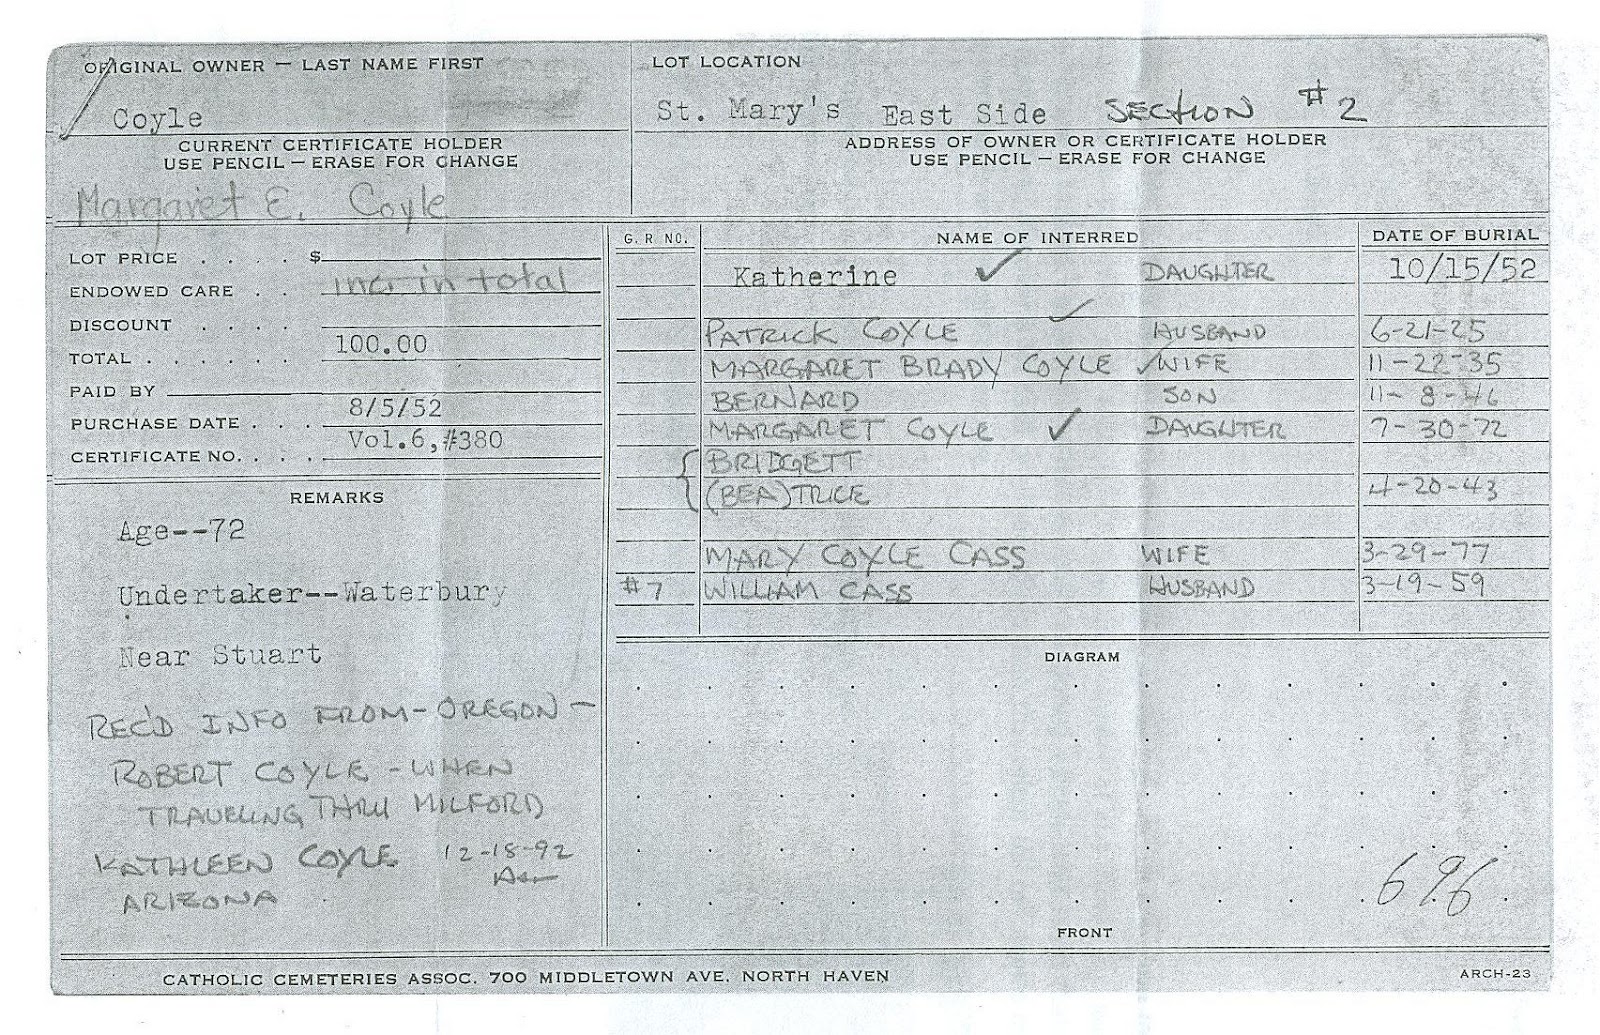 ORIGINAL OWNER — LAST NAME FIRST
Coyle
LOT LOCATION
St. Mary's East Side SECTION #2
CURRENT CERTIFICATE HOLDER
USE PENCIL — ERASE FOR CHANGE
Margaret E. Coyle
ADDRESS OF OWNER OR CERTIFICATE HOLDER
USE PENCIL — ERASE FOR CHANGE
LOT PRICE . . . . $
ENDOWED CARE . . incl in total
DISCOUNT . . . .
TOTAL . . . . . . 100.00
PAID BY
PURCHASE DATE . . . 8/5/52
CERTIFICATE NO. . . . Vol.6,#380
G. R NO. NAME OF INTERRED DATE OF BURIAL
Katherine ✓ DAUGHTER 10/15/52
PATRICK COYLE ✓ HUSBAND 6-21-25
MARGARET BRADY COYLE ✓ WIFE 11-22-35
BERNARD SON 11-8-46
MARGARET COYLE ✓ DAUGHTER 7-30-72
{ BRIDGETT
(BEA)TRICE 4-20-43
MARY COYLE CASS WIFE 3-29-77
#7 WILLIAM CASS HUSBAND 3-19-59
REMARKS
Age--72
Undertaker--Waterbury
Near Stuart
REC'D INFO FROM-OREGON-
ROBERT COYLE - WHEN
TRAVELING THRU MILFORD
KATHLEEN COYLE 12-18-92
ARIZONA
DIAGRAM
696
FRONT
CATHOLIC CEMETERIES ASSOC. 700 MIDDLETOWN AVE. NORTH HAVEN
ARCH-23